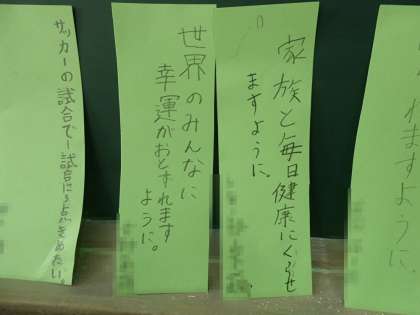 れますように
家族と毎日健康にくらせ
ますように。
世界のみんなに
幸運がおとずれます
ように。
サッカーの試合で一試合に3点きめたい。